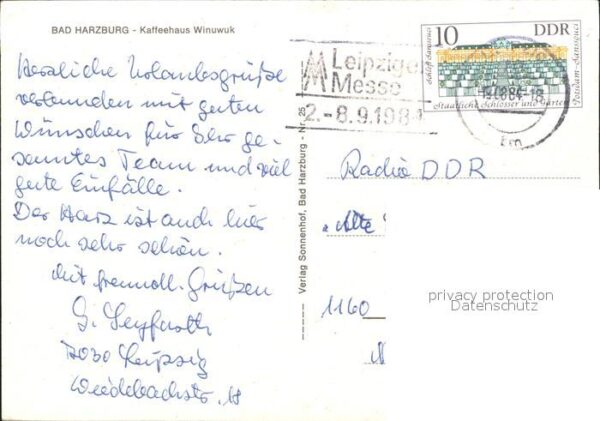 BAD HARZBURG - Kaffeehaus Winuwuk
Herzliche Urlaubsgrüße
verbunden mit guten
Wünschen für Ihr ge-
samtes Team und viel
gute Einfälle.
Der Harz ist auch hier
noch sehr schön.
Mit freundl. Grüßen
G. Seyfarth
7030 Leipzig
Wiedebachstr. 18
Verlag Sonnenhof, Bad Harzburg - Nr. 25
Leipziger
Messe
2.-8.9.1984
10 DDR
Schloß Sanssouci
Potsdam-Sanssouci
Staatliche Schlösser und Gärten
Radio DDR
"Alte
1160
privacy protection
Datenschutz